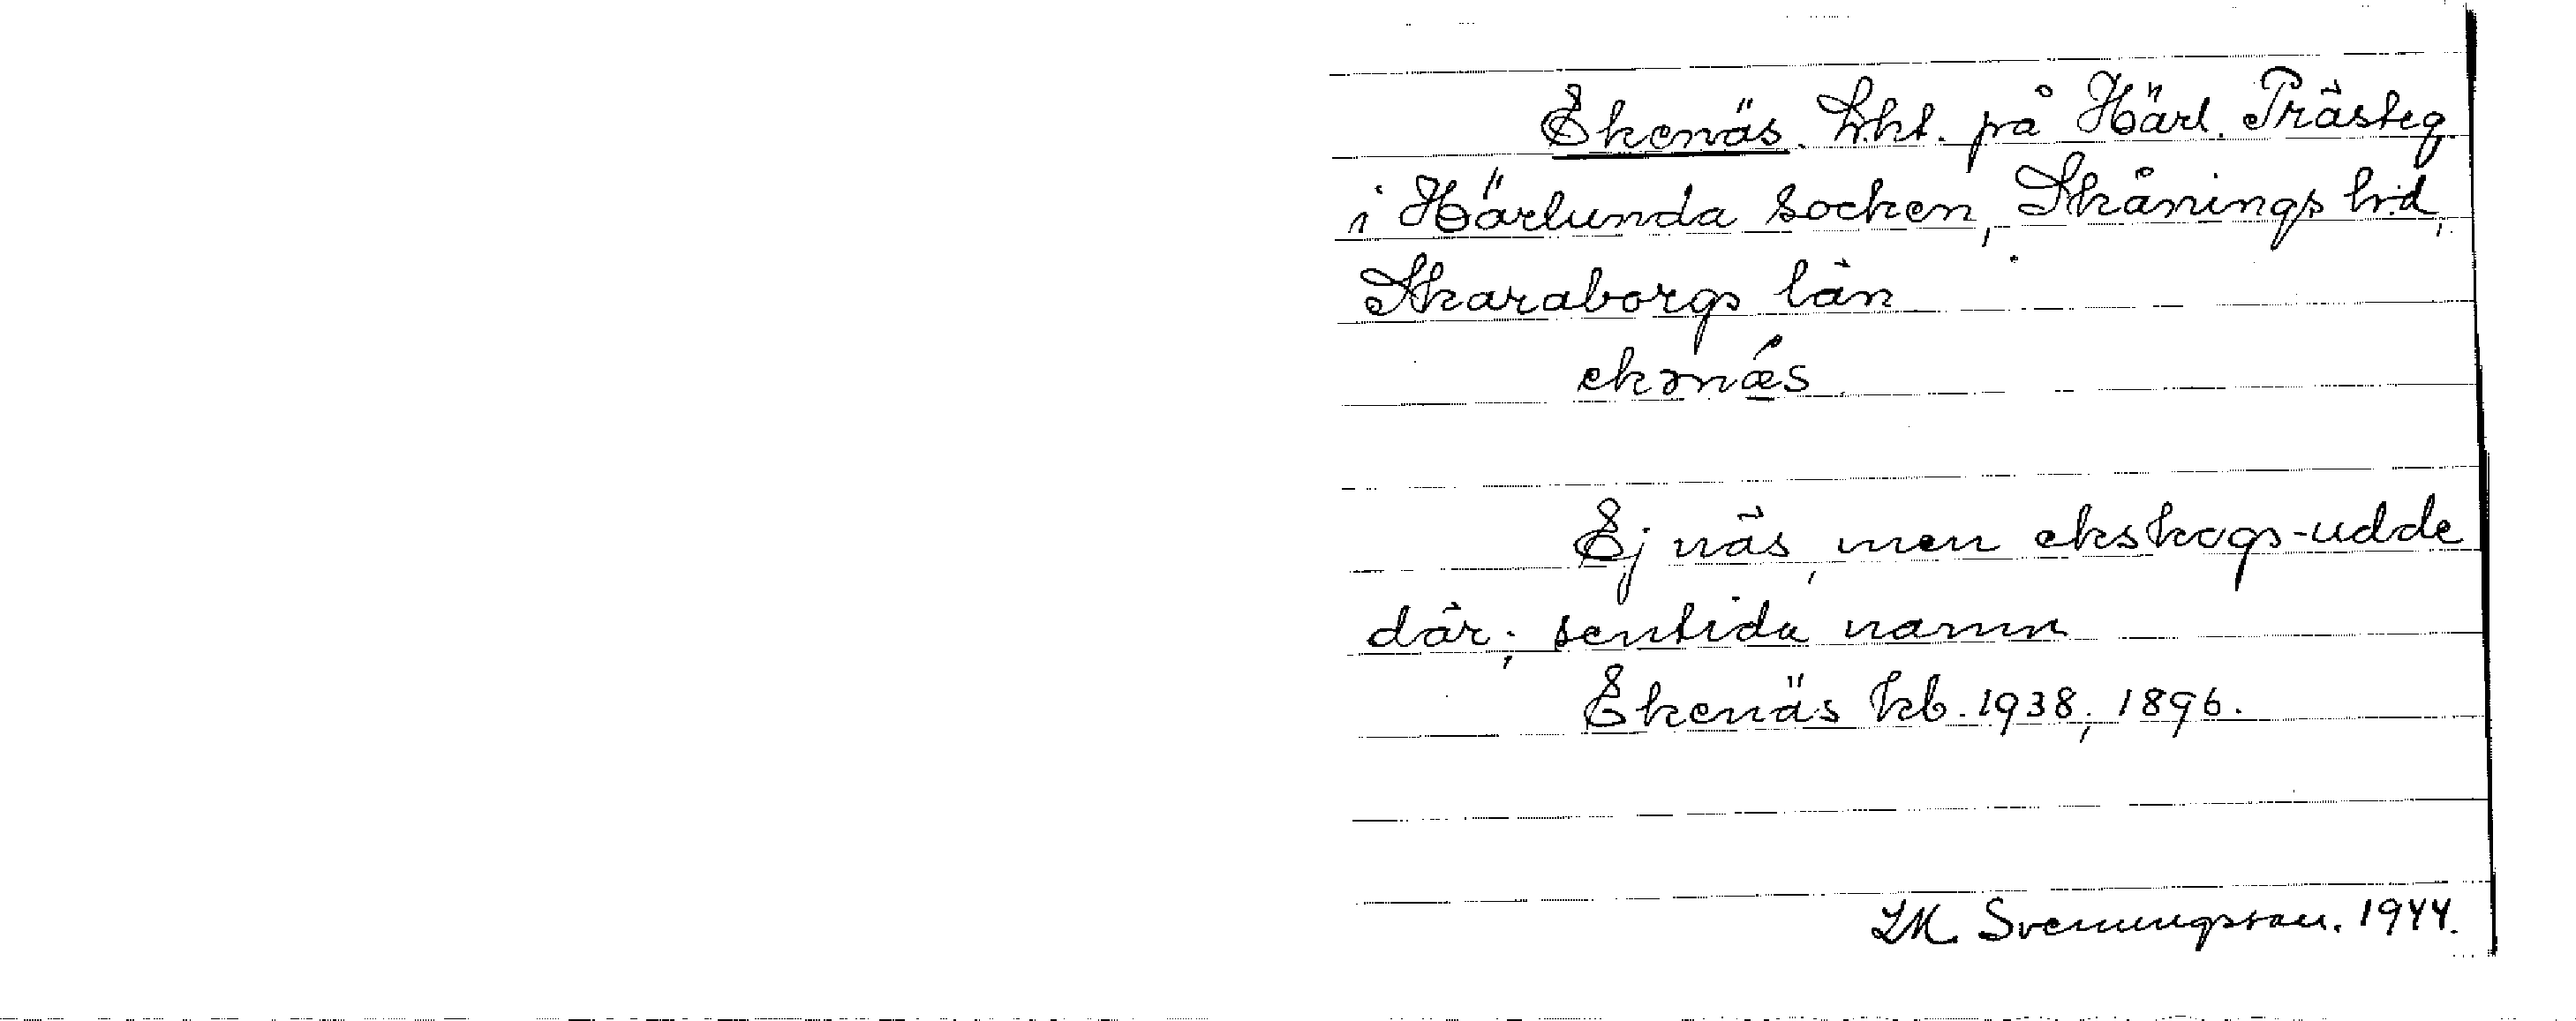 Ekenäs. Lht. på Härl. Prästeg.
i Härlunda socken, Skånings hd,
Skaraborgs län
ekənæs
Ej näs, men ekskogs-udde
där; sentida namn
Ekenäs kb. 1938, 1896.
Sveningsson. 1944.